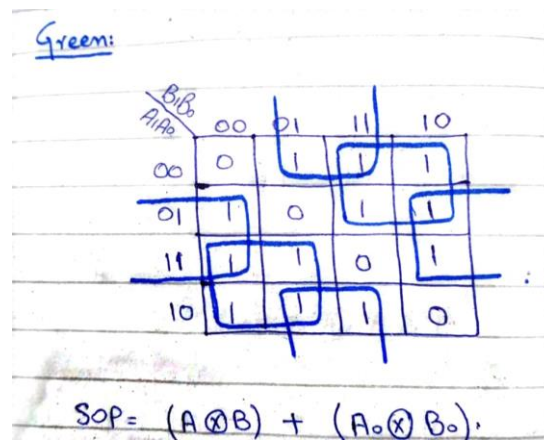 Green:
B₁B₀
A₁A₀
00 01 11 10
00 0 1 1 1
01 1 0 1 1
11 1 1 0 1
10 1 1 1 0
SOP= (A⊗B) + (A₀⊗B₀).